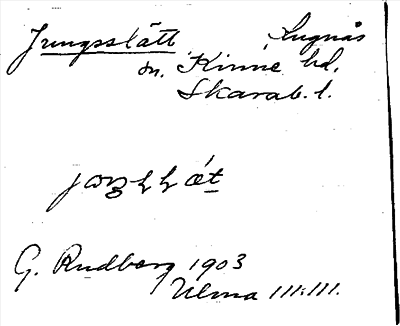 Jungsslätt Lugnås
sn. Kinne hd.
Skarab. l.
G. Rudberg 1903
Ulma 111:111.